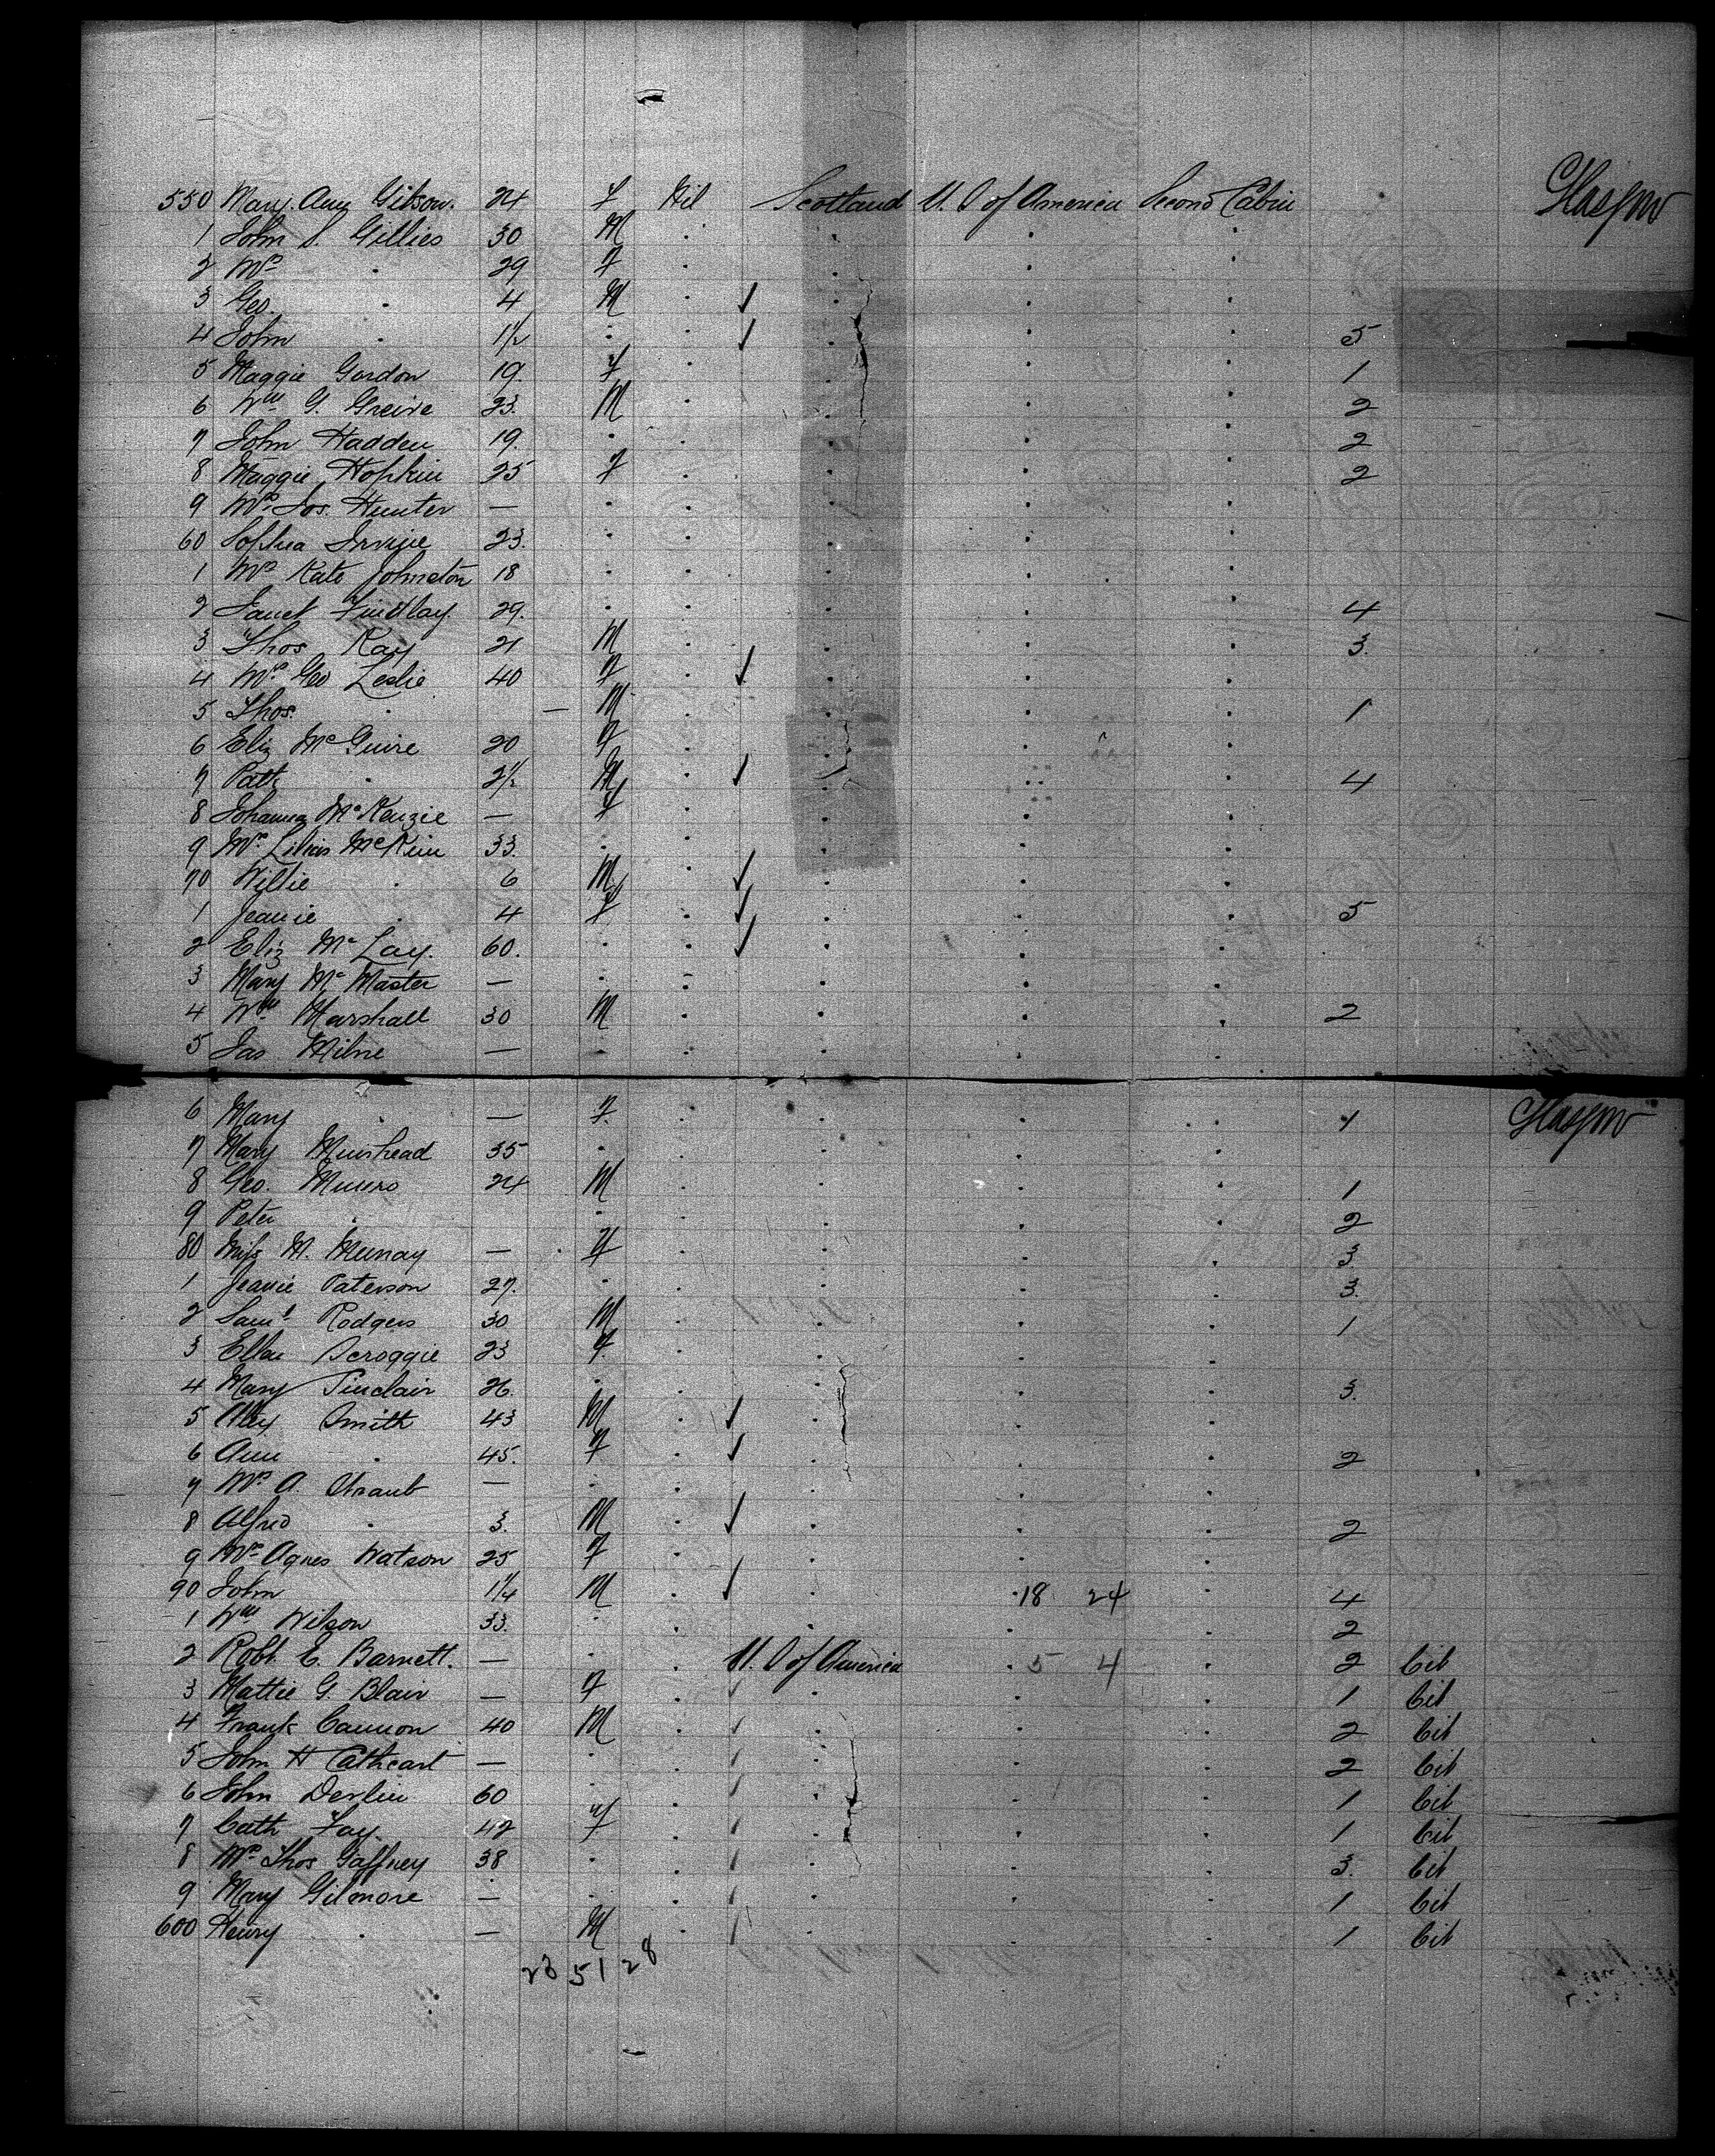 550 Mary Ann Gibson. 24 F Nil Scotland U. S of America Second Cabin Glasgow
1 John S. Gillies 30 M
2 Mrs " 29 F
3 Geo. " 4 M ✓
4 John " 1½ " ✓ 5
5 Maggie Gordon 19. F 1
6 Wm G. Greive 23. M 2
7 John Hadden 19. " 2
8 Maggie Hopkin 25 F 2
9 Mrs Jos. Hunter —
60 Sophia Irvine 23.
1 Mrs Kate Johnston 18
2 Janet Findlay. 29. 4
3 Thos Kay 21 M 3.
4 Mrs Geo Leslie 40 F ✓
5 Thos. " — M 1
6 Eliz McGuire 20 F
7 Patk " 2½ M ✓ 4
8 Johanna McKenzie — F
9 Mrs Lilias McKim 33.
70 Willie " 6 M ✓
1 Jeanie " 4 F ✓ 5
2 Eliz McLay. 60. ✓
3 Mary McMaster —
4 Wm Marshall 30 M 2
5 Jas Milne —
6 Mary " — F. 1 Glasgow
7 Mary Muirhead 35
8 Geo. Munro 24 M 1
9 Peter " 2
80 Miss M. Murray — F 3.
1 Jeanie Paterson 27. 3.
2 Saml Rodgers 30 M 1
3 Ellen Scroggie 23 F
4 Mary Sinclair 26. 3.
5 Alex Smith 43 M ✓
6 Ann " 45. F ✓ 2
7 Mrs A. Straub —
8 Alfred " 3. M ✓ 2
9 Mrs Agnes Watson 25 F
90 John " 1¼ M ✓ 18 24 4
1 Wm Wilson 33. 2
2 Robt. E. Barnett. — U. S of America 5 4 2 Cit
3 Mattie G. Blair — F 1 Cit
4 Frank Cannon 40 M 2 Cit
5 John H Cathcart — 2 Cit
6 John Devlin 60 1 Cit
7 Cath Fay. 42 F 1 Cit
8 Mrs Thos Gaffney 38 3. Cit
9 Mary Gilmore — 1 Cit
600 Henry " — M 1 Cit
23 51 28